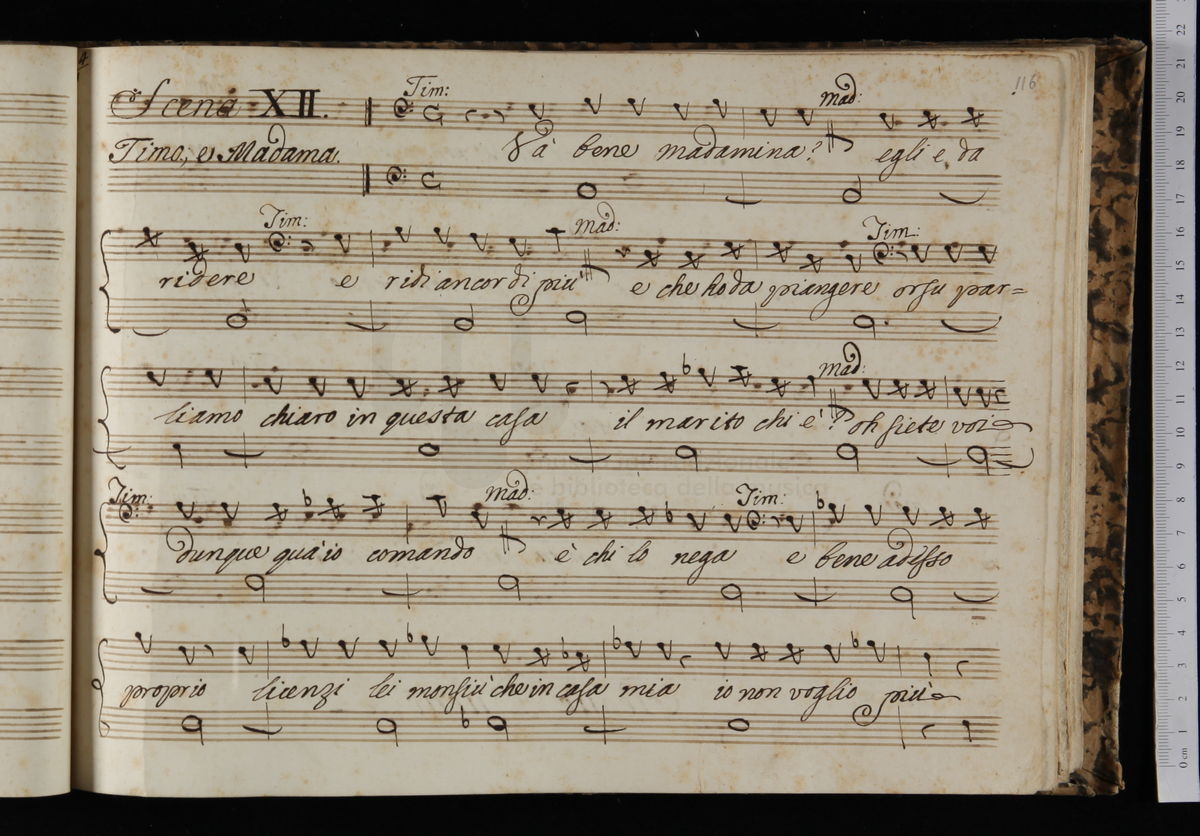 4
116
Scena XII.
Tim: Mad:
Timo, e Madama. Và bene madamina? egli e da
Tim: Mad: Tim:
ridere e ridi ancor di più e che ho da piangere orsu par=
Mad:
liamo chiaro in questa casa il marito chi è? oh siete voi
Tim: Mad: Tim:
dunque quà io comando è chi lo nega e bene adesso
proprio licenzi lei monsiù che in casa mia io non voglio più
biblioteca della musica
0 cm 1 2 3 4 5 6 7 8 9 10 11 12 13 14 15 16 17 18 19 20 21 22